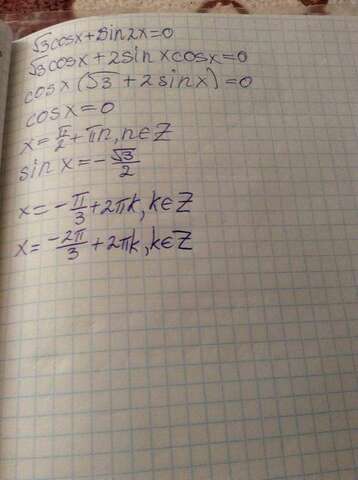 √3cosx+sin2x=0
√3cosx+2sinxcosx=0
cosx(√3+2sinx)=0
cosx=0
x=π/2+πn,n∈Z
sinx=-√3/2
x=-π/3+2πk,k∈Z
x=-2π/3+2πk,k∈Z